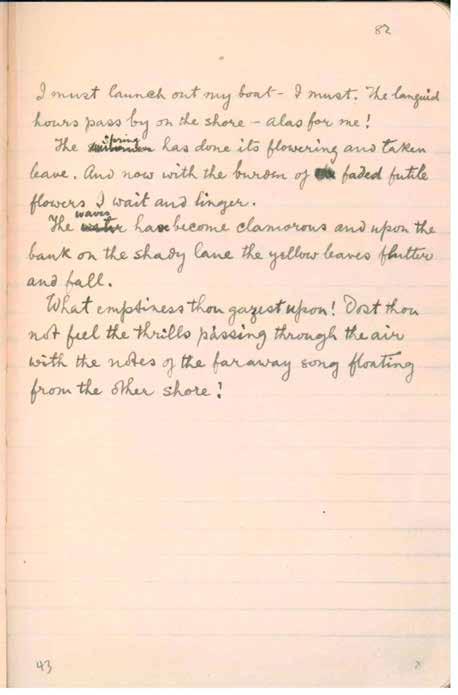 82
I must launch out my boat – I must. The languid
hours pass by on the shore – alas for me!
The spring has done its flowering and taken
leave. And now with the burden of faded futile
flowers I wait and linger.
The waves have become clamorous and upon the
bank on the shady lane the yellow leaves flutter
and fall.
What emptiness thou gazest upon! Dost thou
not feel the thrills passing through the air
with the notes of the faraway song floating
from the other shore!
43